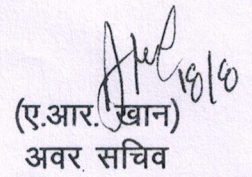 18/8
(ए.आर. खान)
अवर सचिव